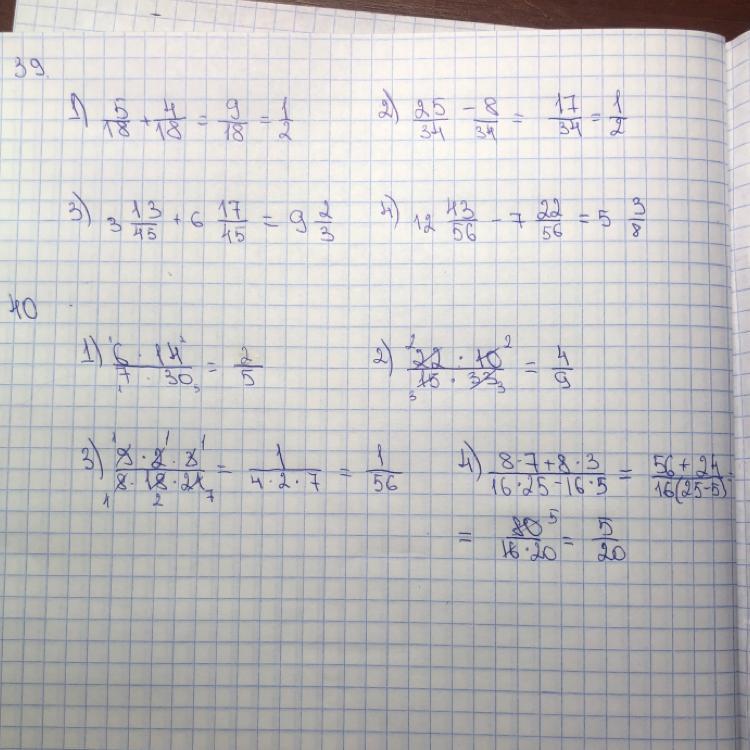 39.
1) 5/18 + 4/18 = 9/18 = 1/2 2) 25/34 - 8/34 = 17/34 = 1/2
3) 3 13/45 + 6 17/45 = 9 2/3 4) 12 43/56 - 7 22/56 = 5 3/8
40
1) 6 · 14 / 7 · 30 = 2/5 2) 22 · 10 / 15 · 33 = 4/9
3) 9 · 2 · 3 / 8 · 18 · 21 = 1 / 4 · 2 · 7 = 1/56 4) 8·7+8·3 / 16·25-16·5 = 56+24 / 16(25-5) =
= 80 / 16·20 = 5/20